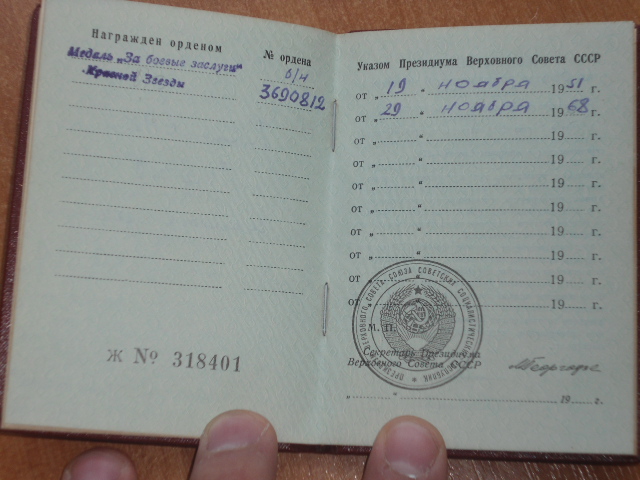 Награжден орденом
№ ордена
Медаль „За боевые заслуги"
б/н
Красной Звезды
3690812
Ж № 318401
Указом Президиума Верховного Совета СССР
от „ 19 “ ноября 1951 г.
от „ 29 “ ноября 1968 г.
от „ “ 19 г.
от „ “ 19 г.
от „ “ 19 г.
от „ “ 19 г.
от „ “ 19 г.
от „ “ 19 г.
от „ “ 19 г.
от „ “ 19 г.
М. П.
Секретарь Президиума
Верховного Совета СССР
„ “ 19 г.